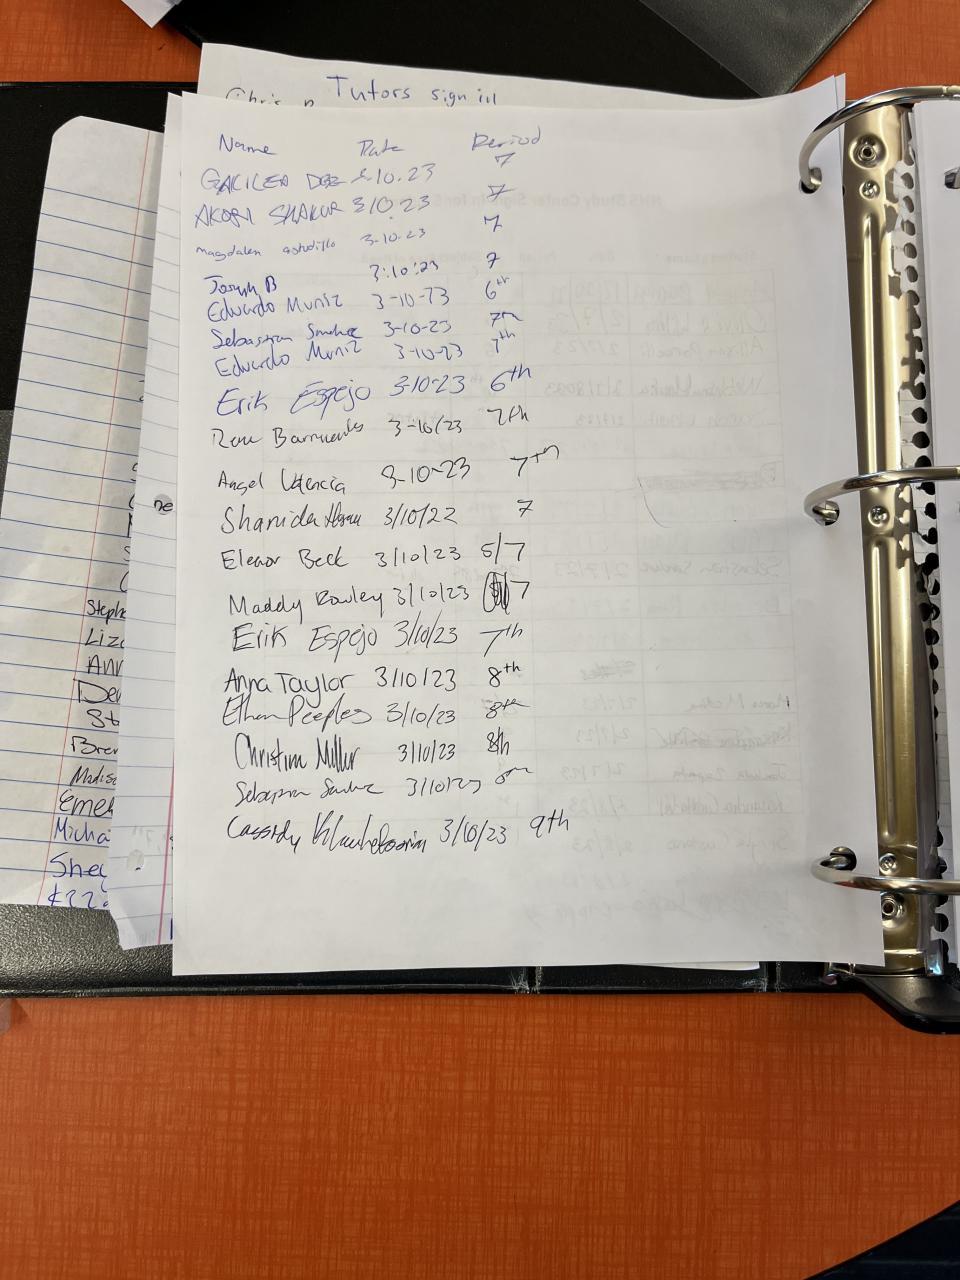 Tutors sign in
Chris
Name Date Period
GALILEA 3-10.23 7
AKORI SHAKUR 3/10.23 7
magdalen astudillo 3-10-23 7
Joseph B 3:10:23 7
Eduardo Muniz 3-10-23 6th
Sebastian Sanchez 3-10-23 7th
Eduardo Muniz 3-10-23 7th
Erik Espejo 3-10-23 6th
Rene Barrientos 3-10/23 7th
Angel Valencia 3-10-23 7th
ne
Shanida 3/10/22 7
Eleanor Beck 3/10/23 5/7
Maddy Rowley 3/10/23 7
Erik Espejo 3/10/23 7th
Anna Taylor 3/10/23 8th
Ethan Peeples 3/10/23 8th
Christina Miller 3/10/23 8th
Sebastian Sanchez 3/10/23 8th
Cassidy 3/10/23 9th
Steph
Liz
Ann
De
St
Bren
Madis
Eme
Micha
Shey